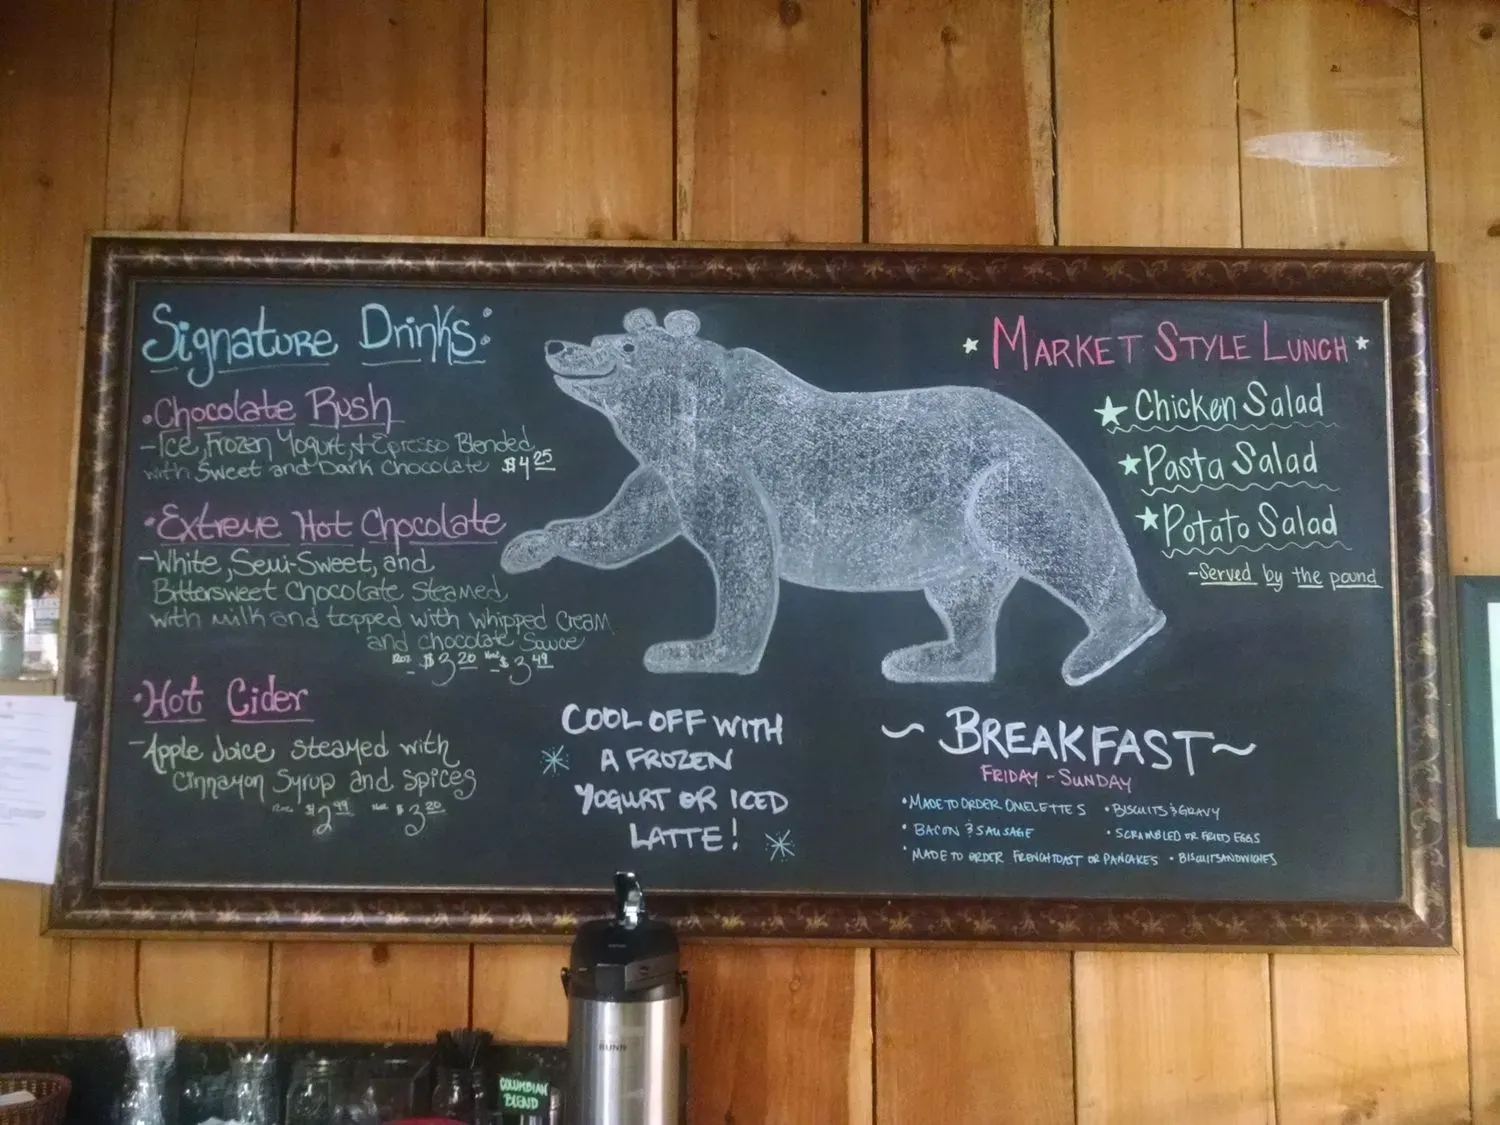 Signature Drinks:
• Chocolate Rush
- Ice, Frozen Yogurt, + Espresso Blended
with Sweet and Dark Chocolate $4 25
• Extreme Hot Chocolate
- White, Semi-Sweet, and
Bittersweet Chocolate Steamed
with milk and topped with whipped Cream
and chocolate Sauce
12oz $3 20 16oz $3 49
• Hot Cider
- Apple Juice steamed with
Cinnamon Syrup and spices
$2 99 $3 20
COOL OFF WITH
A FROZEN
YOGURT OR ICED
LATTE!
★ MARKET STYLE LUNCH ★
★ Chicken Salad
★ Pasta Salad
★ Potato Salad
- Served by the pound
~ BREAKFAST ~
FRIDAY - SUNDAY
• MADE TO ORDER OMELETTES • BISCUITS & GRAVY
• BACON & SAUSAGE • SCRAMBLED OR FRIED EGGS
• MADE TO ORDER FRENCH TOAST OR PANCAKES • BISCUIT SANDWICHES
BUNN
COLUMBIAN
BLEND